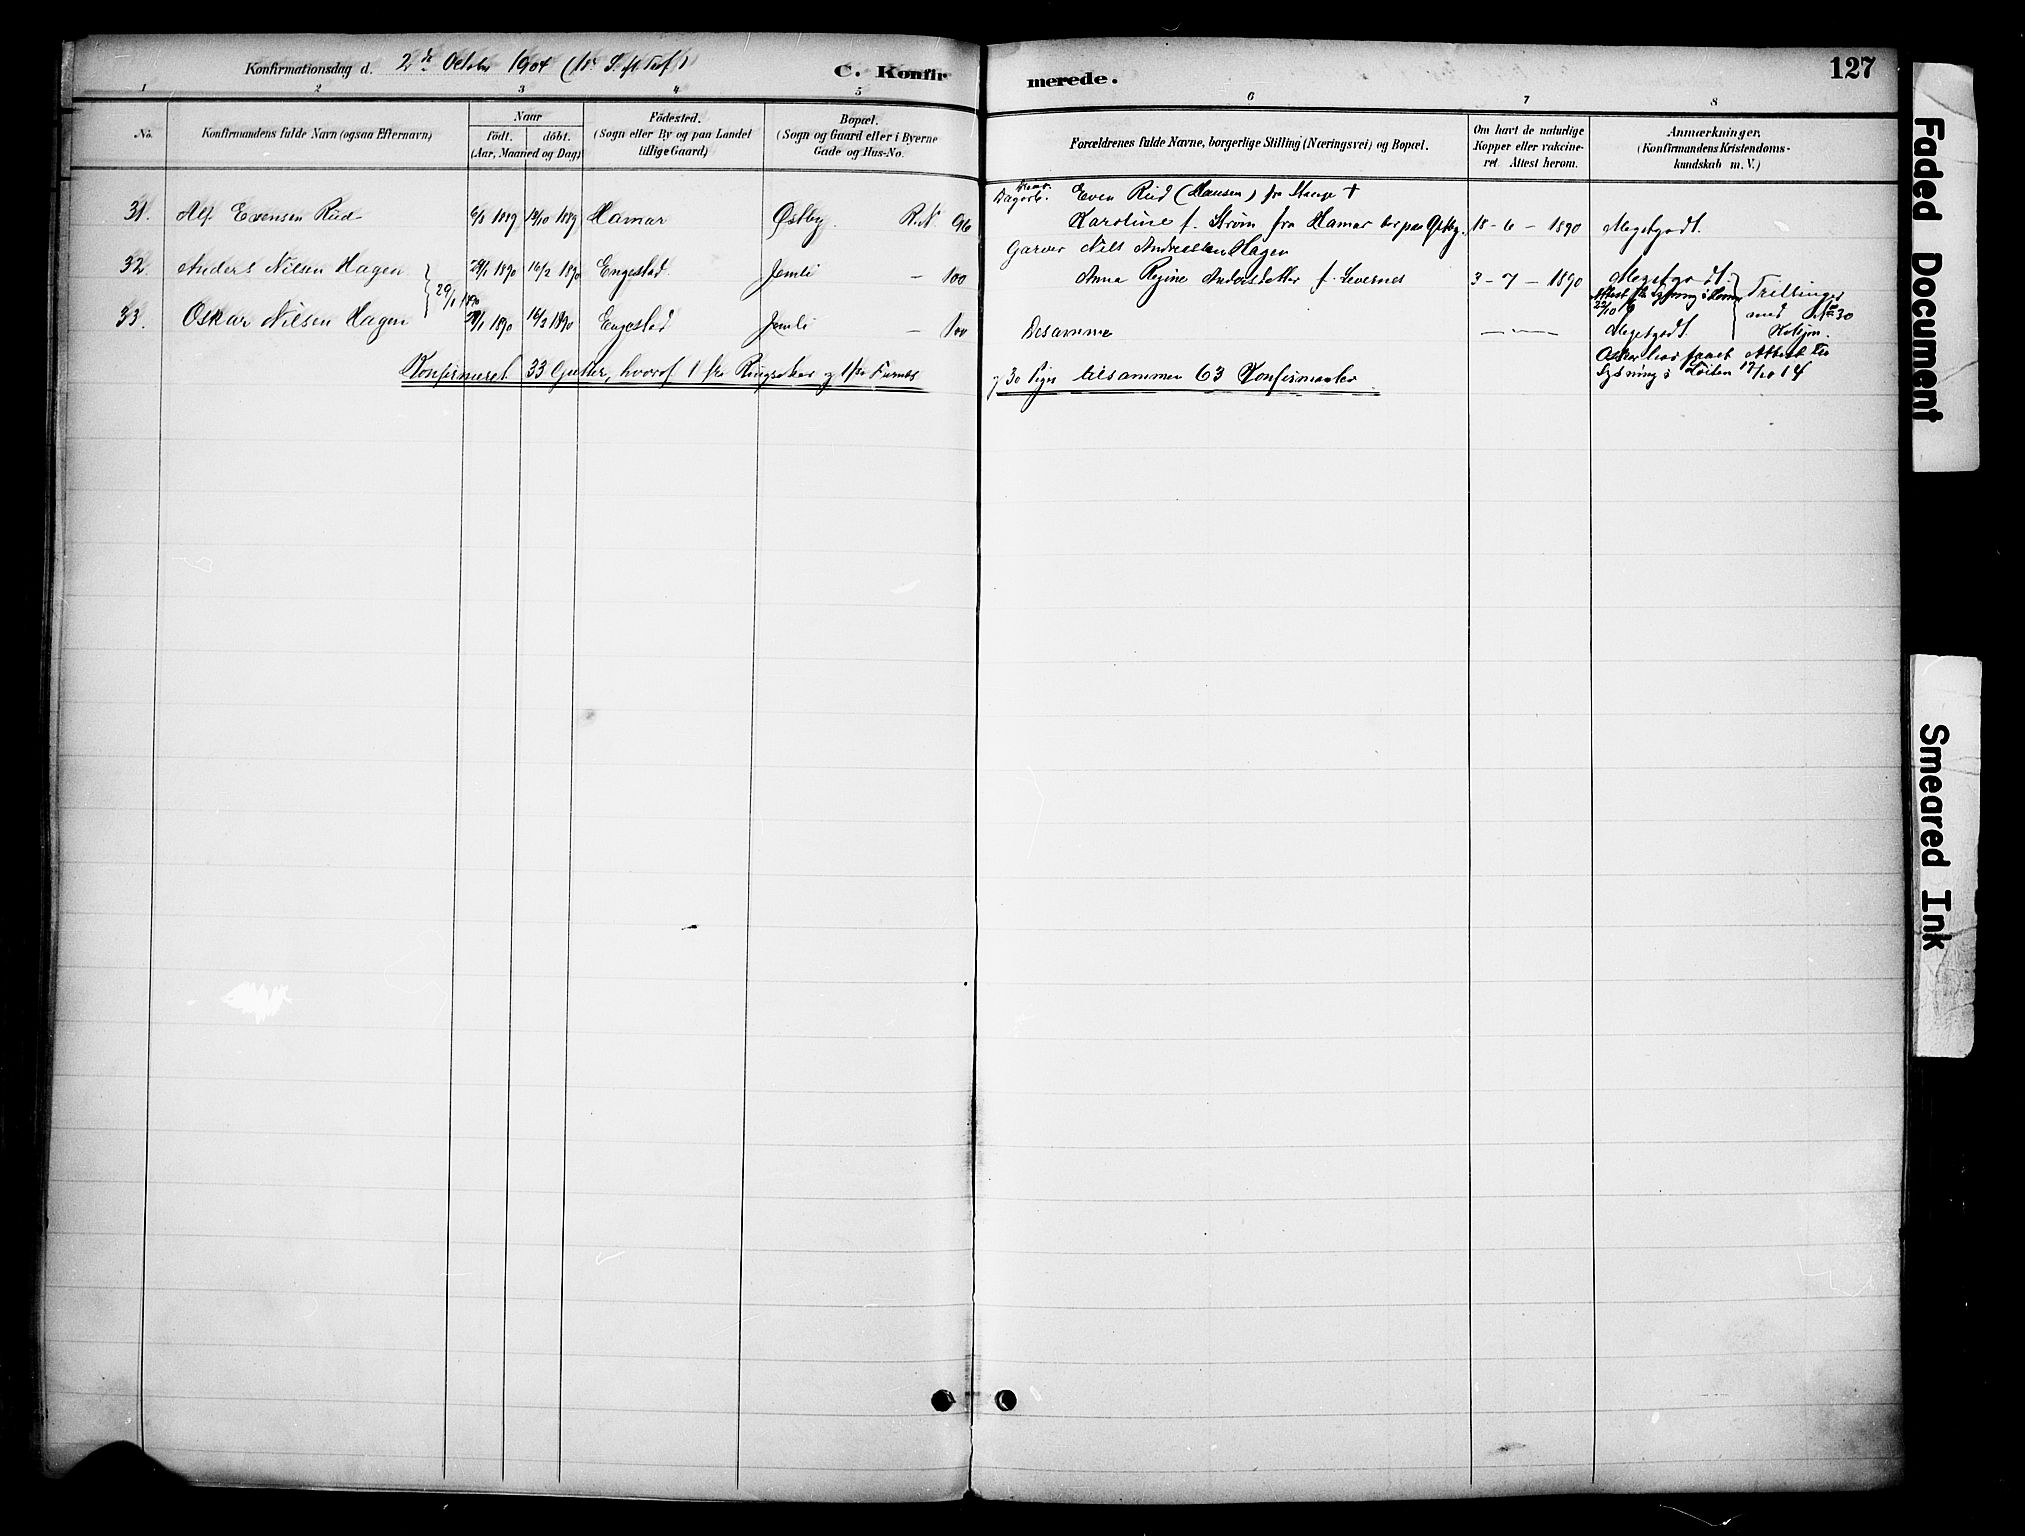 Konfirmationsdag d. 2de October 1904
C. Konfirmerede.
127
1 2 3 4 5 6 7 8
No.
Konfirmandens fulde Navn (ogsaa Efternavn)
Naar
født. døbt.
(Aar, Maaned og Dag)
Fødested.
(Sogn eller By og paa Landet
tillige Gaard)
Bopæl.
(Sogn og Gaard eller i Byerne
Gade og Hus-No.
Forældrenes fulde Navne, borgerlige Stilling (Næringsvei) og Bopæl.
Om havt de naturlige
Kopper eller vakcine-
ret. Attest herom.
Anmærkninger.
(Konfirmandens Kristendoms-
kundskab m. V.)
Even Rud (Hansen) fra Stange †
31. Alf Evensen Rud 1889 13/10 1889 Hamar Østby R.N. 96 Karoline f. Strøm fra Hamar bor paa Østby. 18-6-1890 Megetgodt.
Garver Nils Andreassen Hagen
32. Anders Nilsen Hagen 29/1 1890 16/2 1890 Engestad Jemli - 100 Anna Regine Andersdatter f. Severnes 3-7-1890 Megetgodt.
29/1 1890
Trillinger
33. Oskar Nilsen Hagen 29/1 1890 16/2 1890 Engestad Jemli - 100 Desamme Megetgodt.
med No 30
Oskar har faaet Attest til
Lysning i Løiten 17/10 14
Konfirmeret 33 Gutter, hvoraf 1 fra Ringsaker og 1 fra Furnes
og 30 Piger tilsammen 63 Konfirmanter.
Faded Document
Smeared Ink